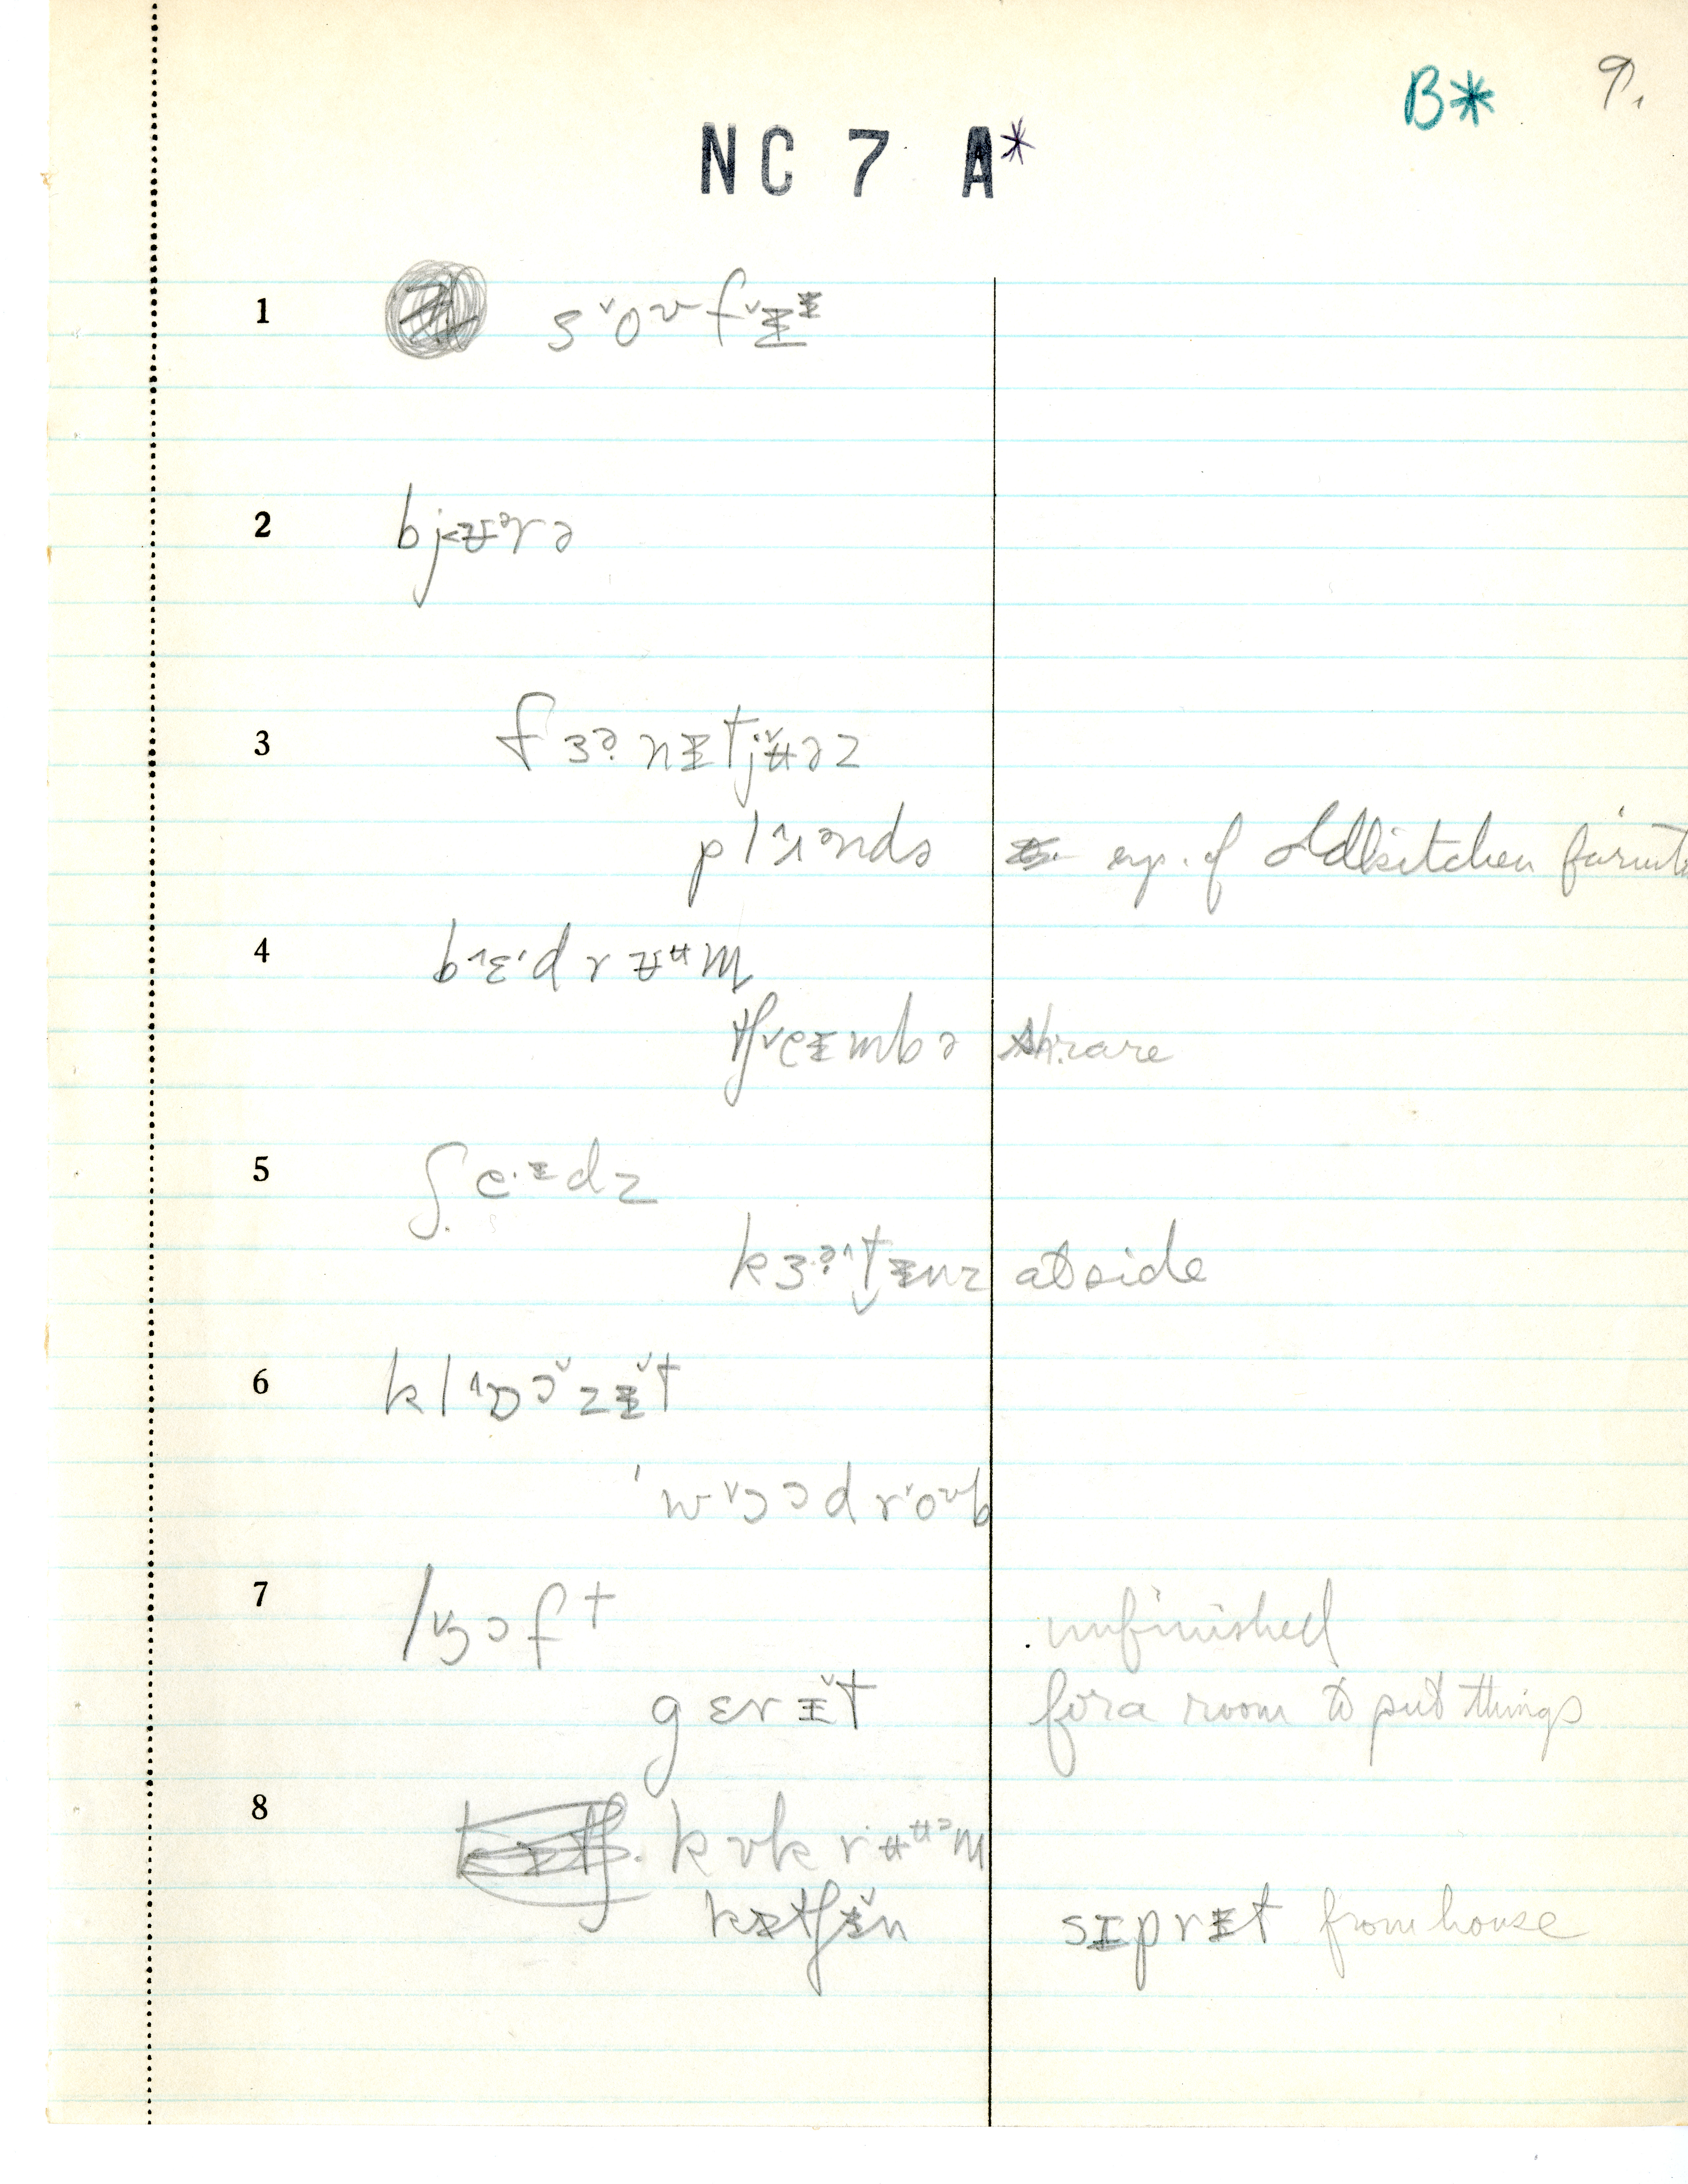 B* 9.
NC 7 A*
1 s˅oʊf˅ɪ̵ᵻ
2 bj<ʉᵊrə
3 fɜɚnᵻtjʉ̌əz
plʌɪənds exp. of old kitchen furnit
4 b˄ɛ·drʉᵘm
tʃ˅eᵻmbə rare
5 ʃe·ᵻdz
kɜɚ˄tᵻnz at side
6 kl˄ɒɔ̌zᵻ̌t
ˈw˅ɔədr˅oʊb
7 l˅ɔɔft unfinished
gɛrᵻ̌t for a room to put things
8 kʊkrʉᵘᵊm
kᵻtʃᵻ̌n sɪprᵻt from house